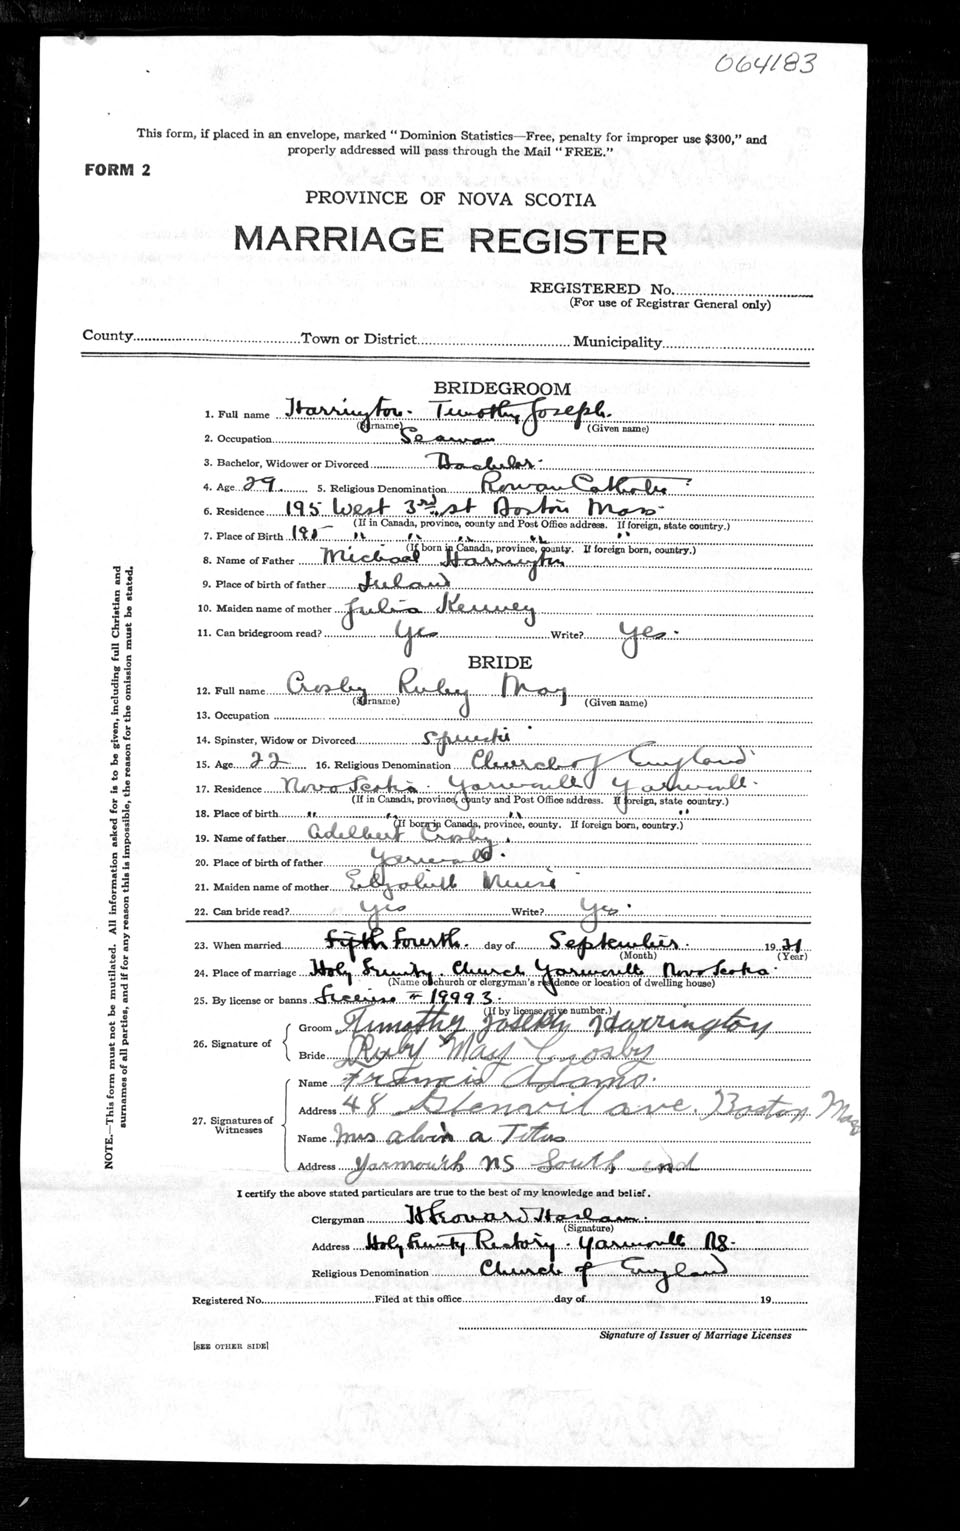 064183
This form, if placed in an envelope, marked "Dominion Statistics—Free, penalty for improper use $300," and
properly addressed will pass through the Mail "FREE."
FORM 2
PROVINCE OF NOVA SCOTIA
MARRIAGE REGISTER
REGISTERED No.
(For use of Registrar General only)
County Town or District Municipality
BRIDEGROOM
1. Full name Harrington. Timothy Joseph.
(Surname) (Given name)
2. Occupation Seaman
3. Bachelor, Widower or Divorced Bachelor.
4. Age 29 5. Religious Denomination Roman Catholic
6. Residence 195 West 3rd st Boston Mass.
(If in Canada, province, county and Post Office address. If foreign, state country.)
7. Place of Birth 195 " " " " "
(If born in Canada, province, county. If foreign born, country.)
8. Name of Father Michael Harrington
9. Place of birth of father Ireland
10. Maiden name of mother Julia Kenney
11. Can bridegroom read? Yes Write? Yes.
BRIDE
12. Full name Crosby Ruby May
(Surname) (Given name)
13. Occupation
14. Spinster, Widow or Divorced Spinster
15. Age 22 16. Religious Denomination Church of England
17. Residence Nova Scotia. Yarmouth Yarmouth.
(If in Canada, province, county and Post Office address. If foreign, state country.)
18. Place of birth " " " "
(If born in Canada, province, county. If foreign born, country.)
19. Name of father Adelbert Crosby.
20. Place of birth of father Yarmouth.
21. Maiden name of mother Elizabeth Muise
22. Can bride read? Yes Write? Yes.
23. When married Fifth Fourth. day of September. 19
(Month) (Year)
24. Place of marriage Holy Trinity Church Yarmouth Nova Scotia.
(Name of church or clergyman's residence or location of dwelling house)
25. By license or banns License # 19993.
(If by license, give number.)
26. Signature of
Groom Timothy Joseph Harrington
Bride Ruby May Crosby
27. Signatures of Witnesses
Name Francis Adams.
Address 48 ave. Boston Mass
Name Mrs Alvin A Titus
Address Yarmouth NS South end
I certify the above stated particulars are true to the best of my knowledge and belief.
Clergyman Haslam.
(Signature)
Address Holy Trinity Rectory. Yarmouth NS.
Religious Denomination Church of England
Registered No. Filed at this office day of 19
Signature of Issuer of Marriage Licenses
[SEE OTHER SIDE]
NOTE.—This form must not be mutilated. All information asked for is to be given, including full Christian and
surnames of all parties, and if for any reason this is impossible, the reason for the omission must be stated.